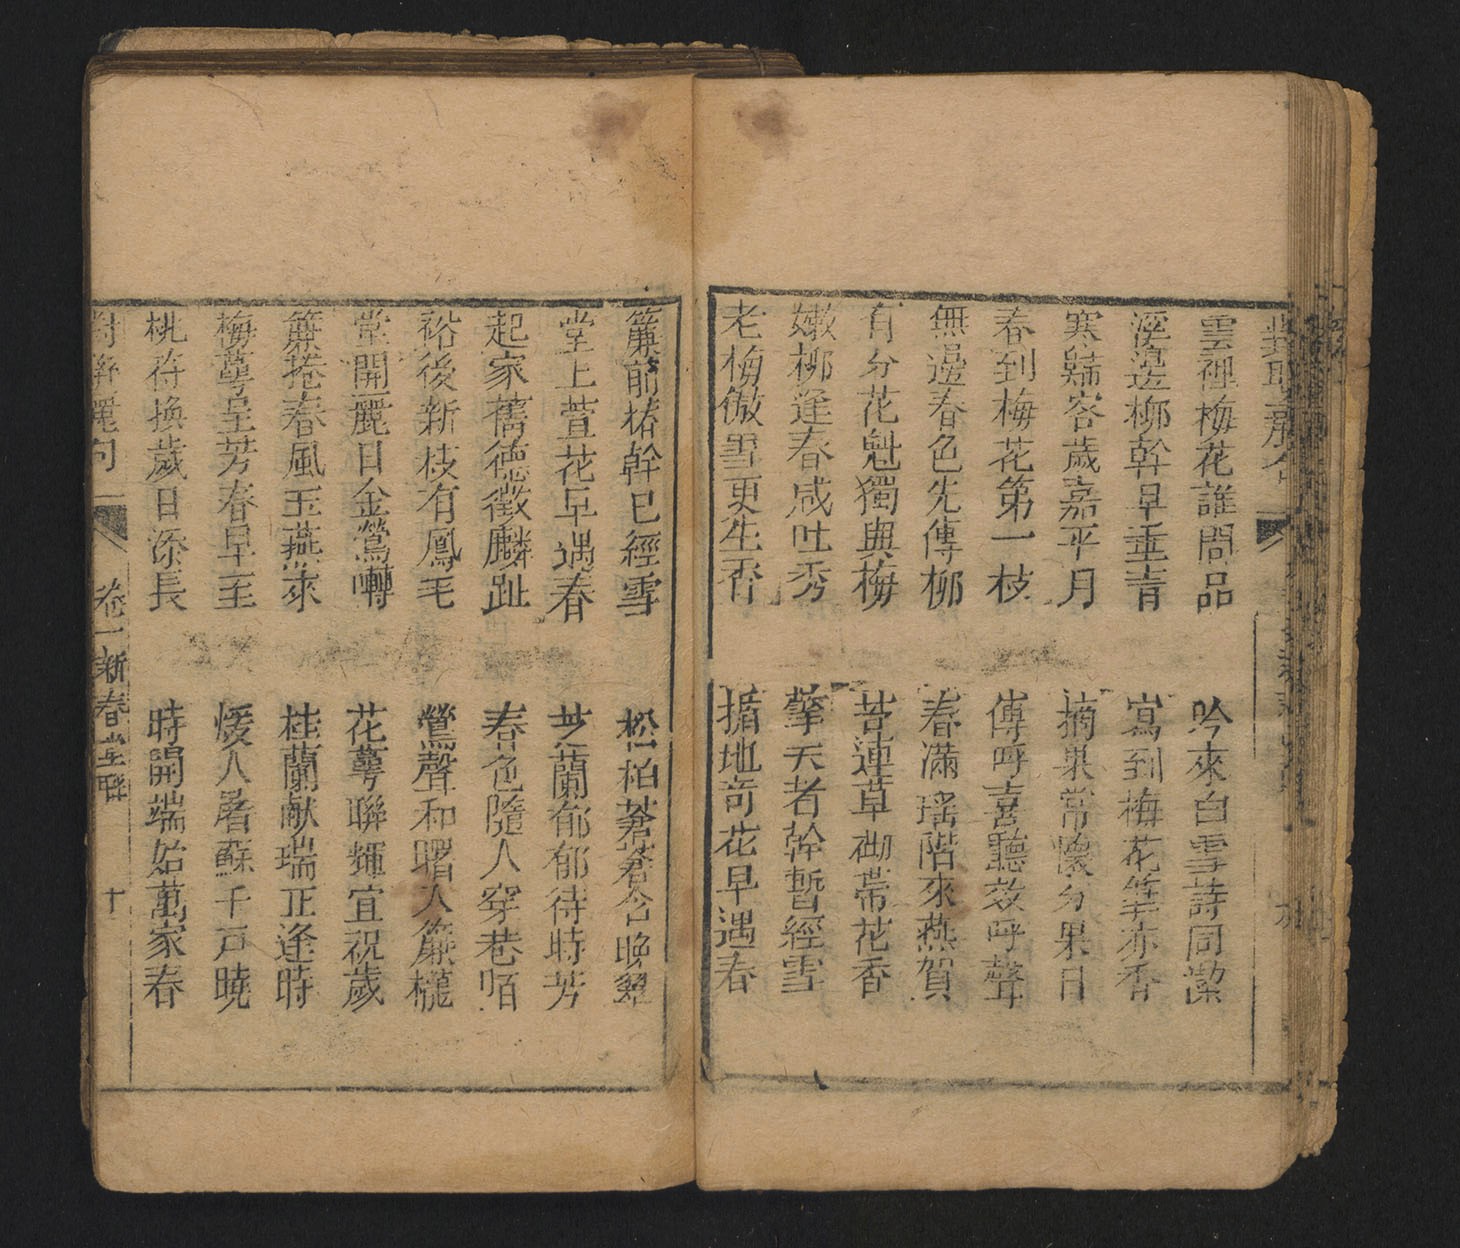 雲裡梅花誰問品
吟來白雪詩同潔
溪邊柳幹早垂青
寫到梅花筆亦香
寒歸客歲嘉平月
摘果常懷分果日
春到梅花第一枝
傳呼喜聽效呼聲
無邊春色先傳柳
春滿瑤階來燕賀
有分花魁獨與梅
苔連草砌帶花香
嫩柳逢春咸吐秀
擎天者幹暫經雪
老梅傲雪更生香
掮地奇花早遇春
簾前椿幹已經雪
松柏蒼蒼含晚翠
堂上萱花早遇春
芝蘭郁郁待時芳
起家舊德徵麟趾
春色隨人穿巷陌
裕後新枝有鳳毛
鶯聲和曙入簾櫳
堂開麗日金鶯囀
花萼聯輝宜祝歲
簾捲春風玉燕來
桂蘭献瑞正逢時
梅萼呈芳春早至
煖入屠蘇千戸曉
桃符換歲日添長
時開端始萬家春
對聯麗句 卷一新春堂聯 十